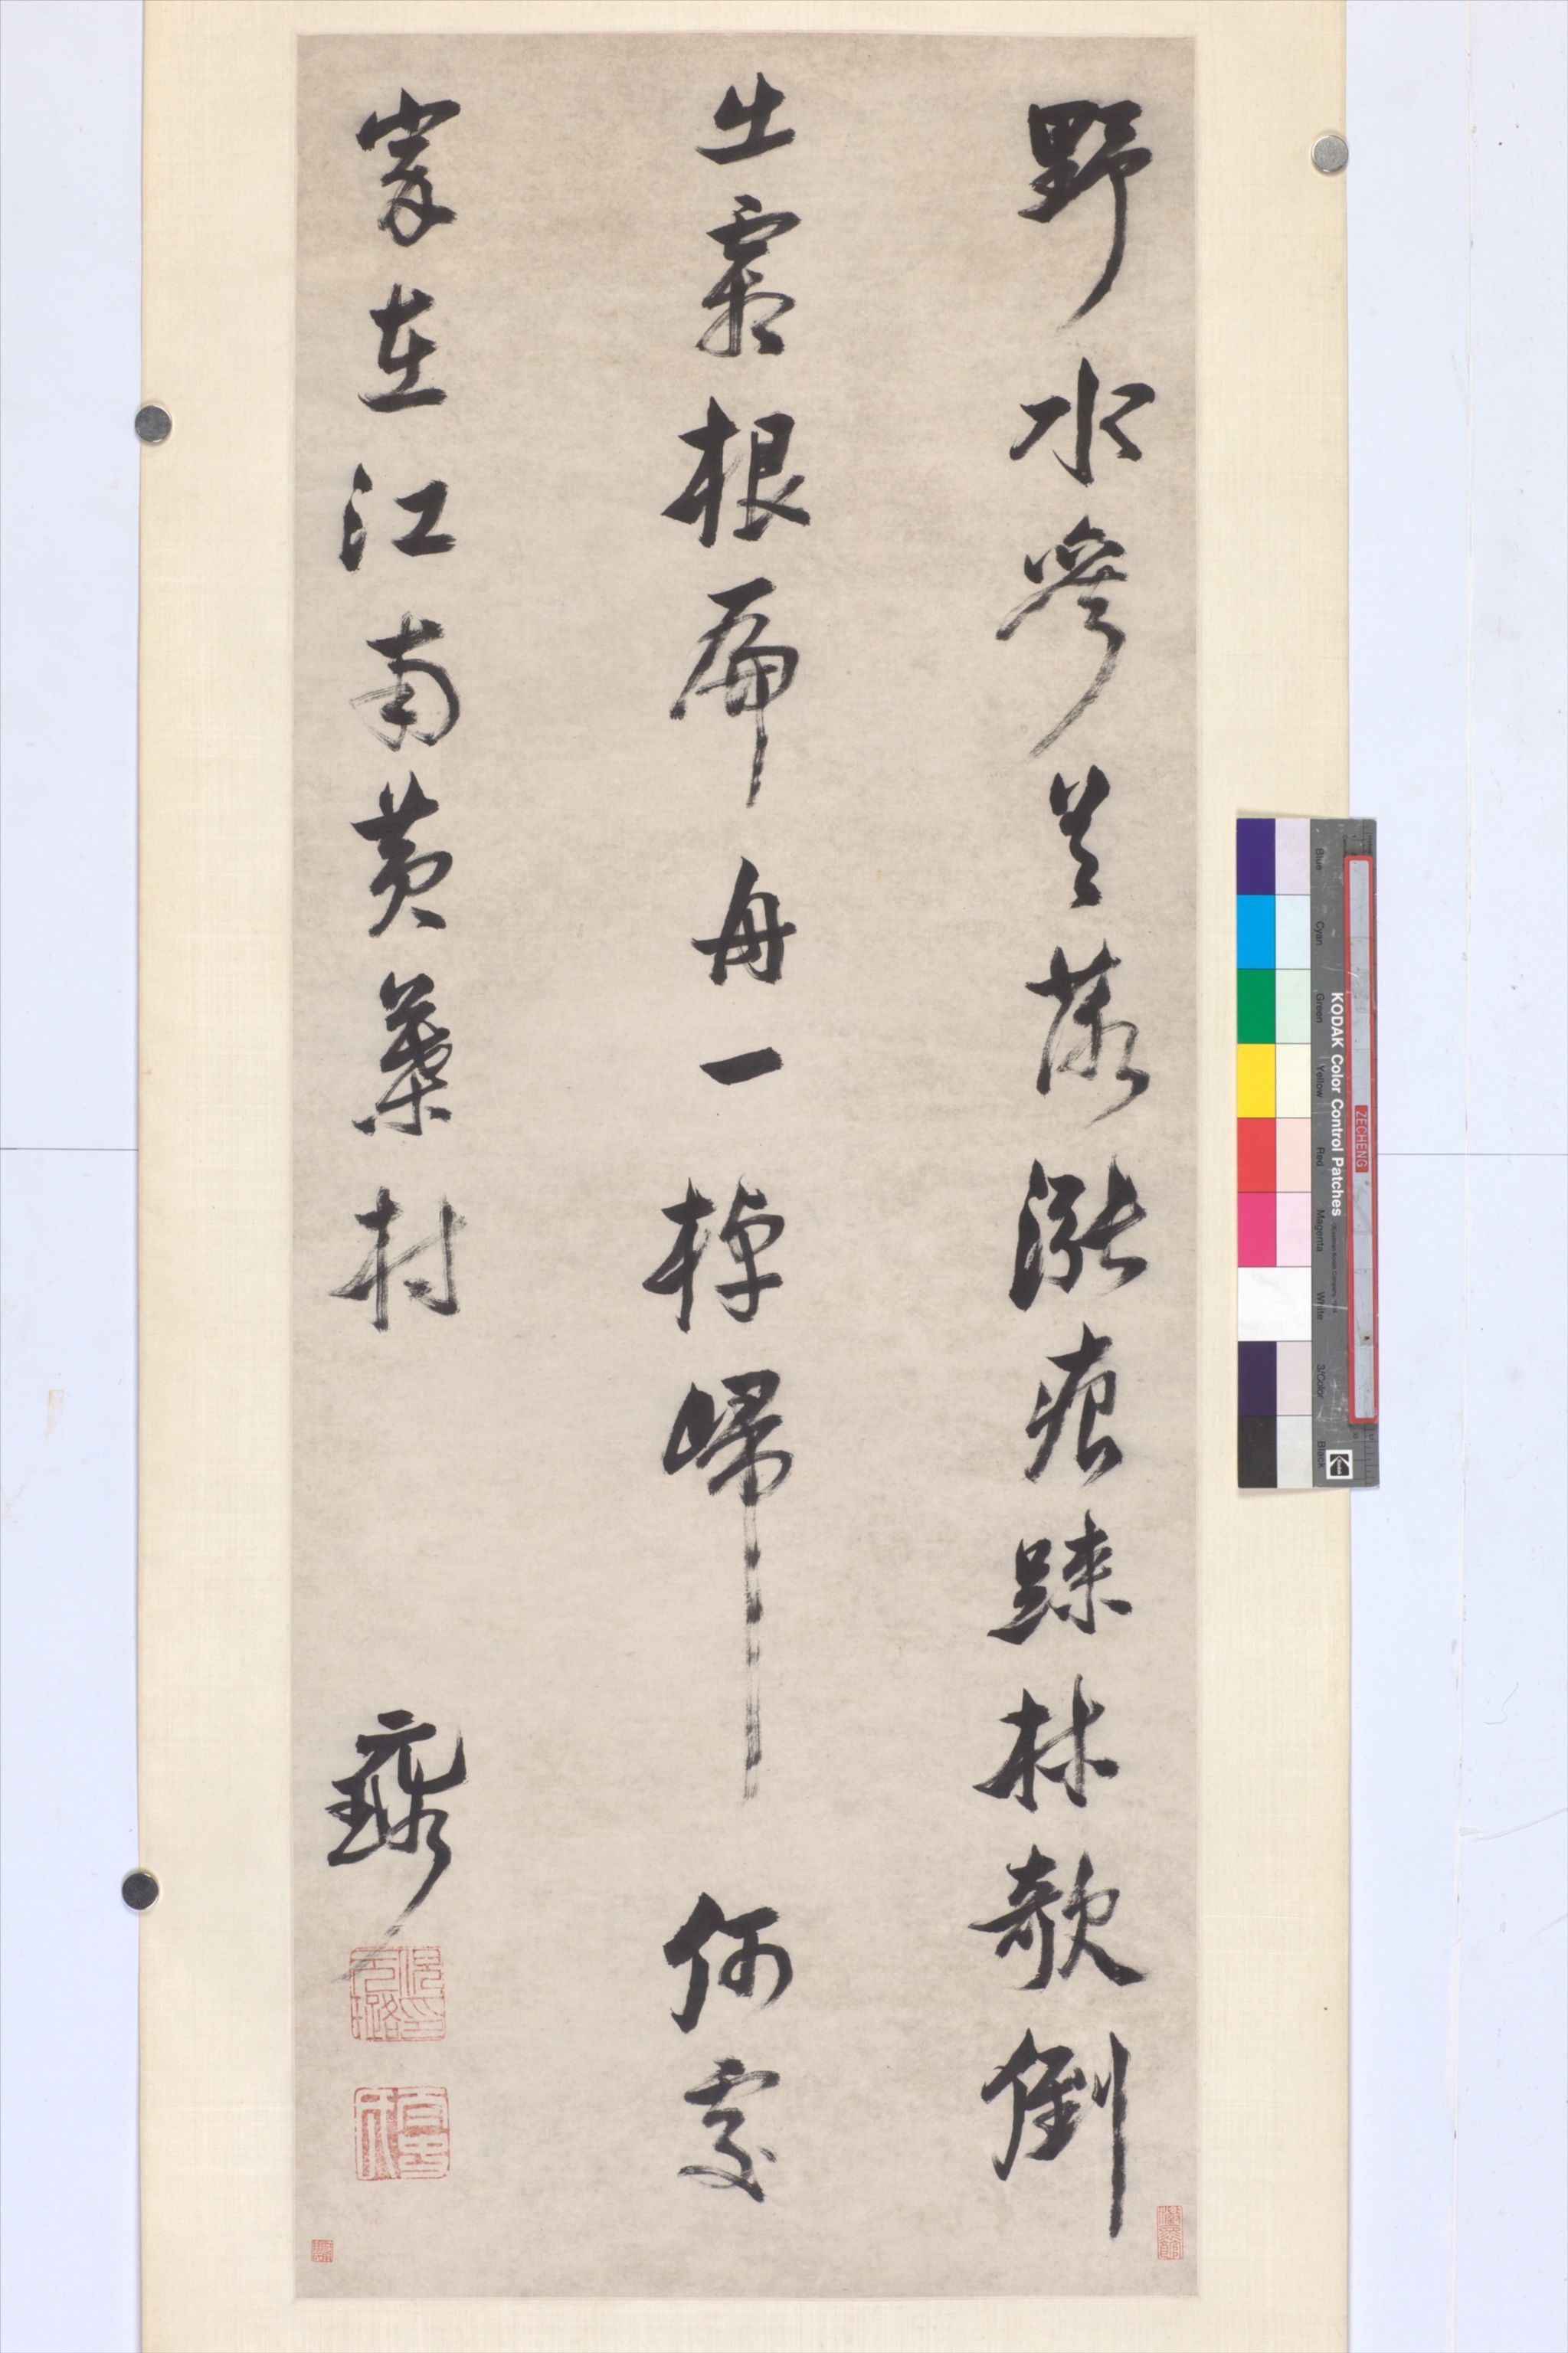 野水參差落漲痕踈林欹倒
出霜根扁舟一棹歸何處
家在江南黃葉村
元璐
倪印元璐
KODAK Color Control Patches
Blue Cyan Green Yellow Red Magenta White 3/Color Black
ZECHENG